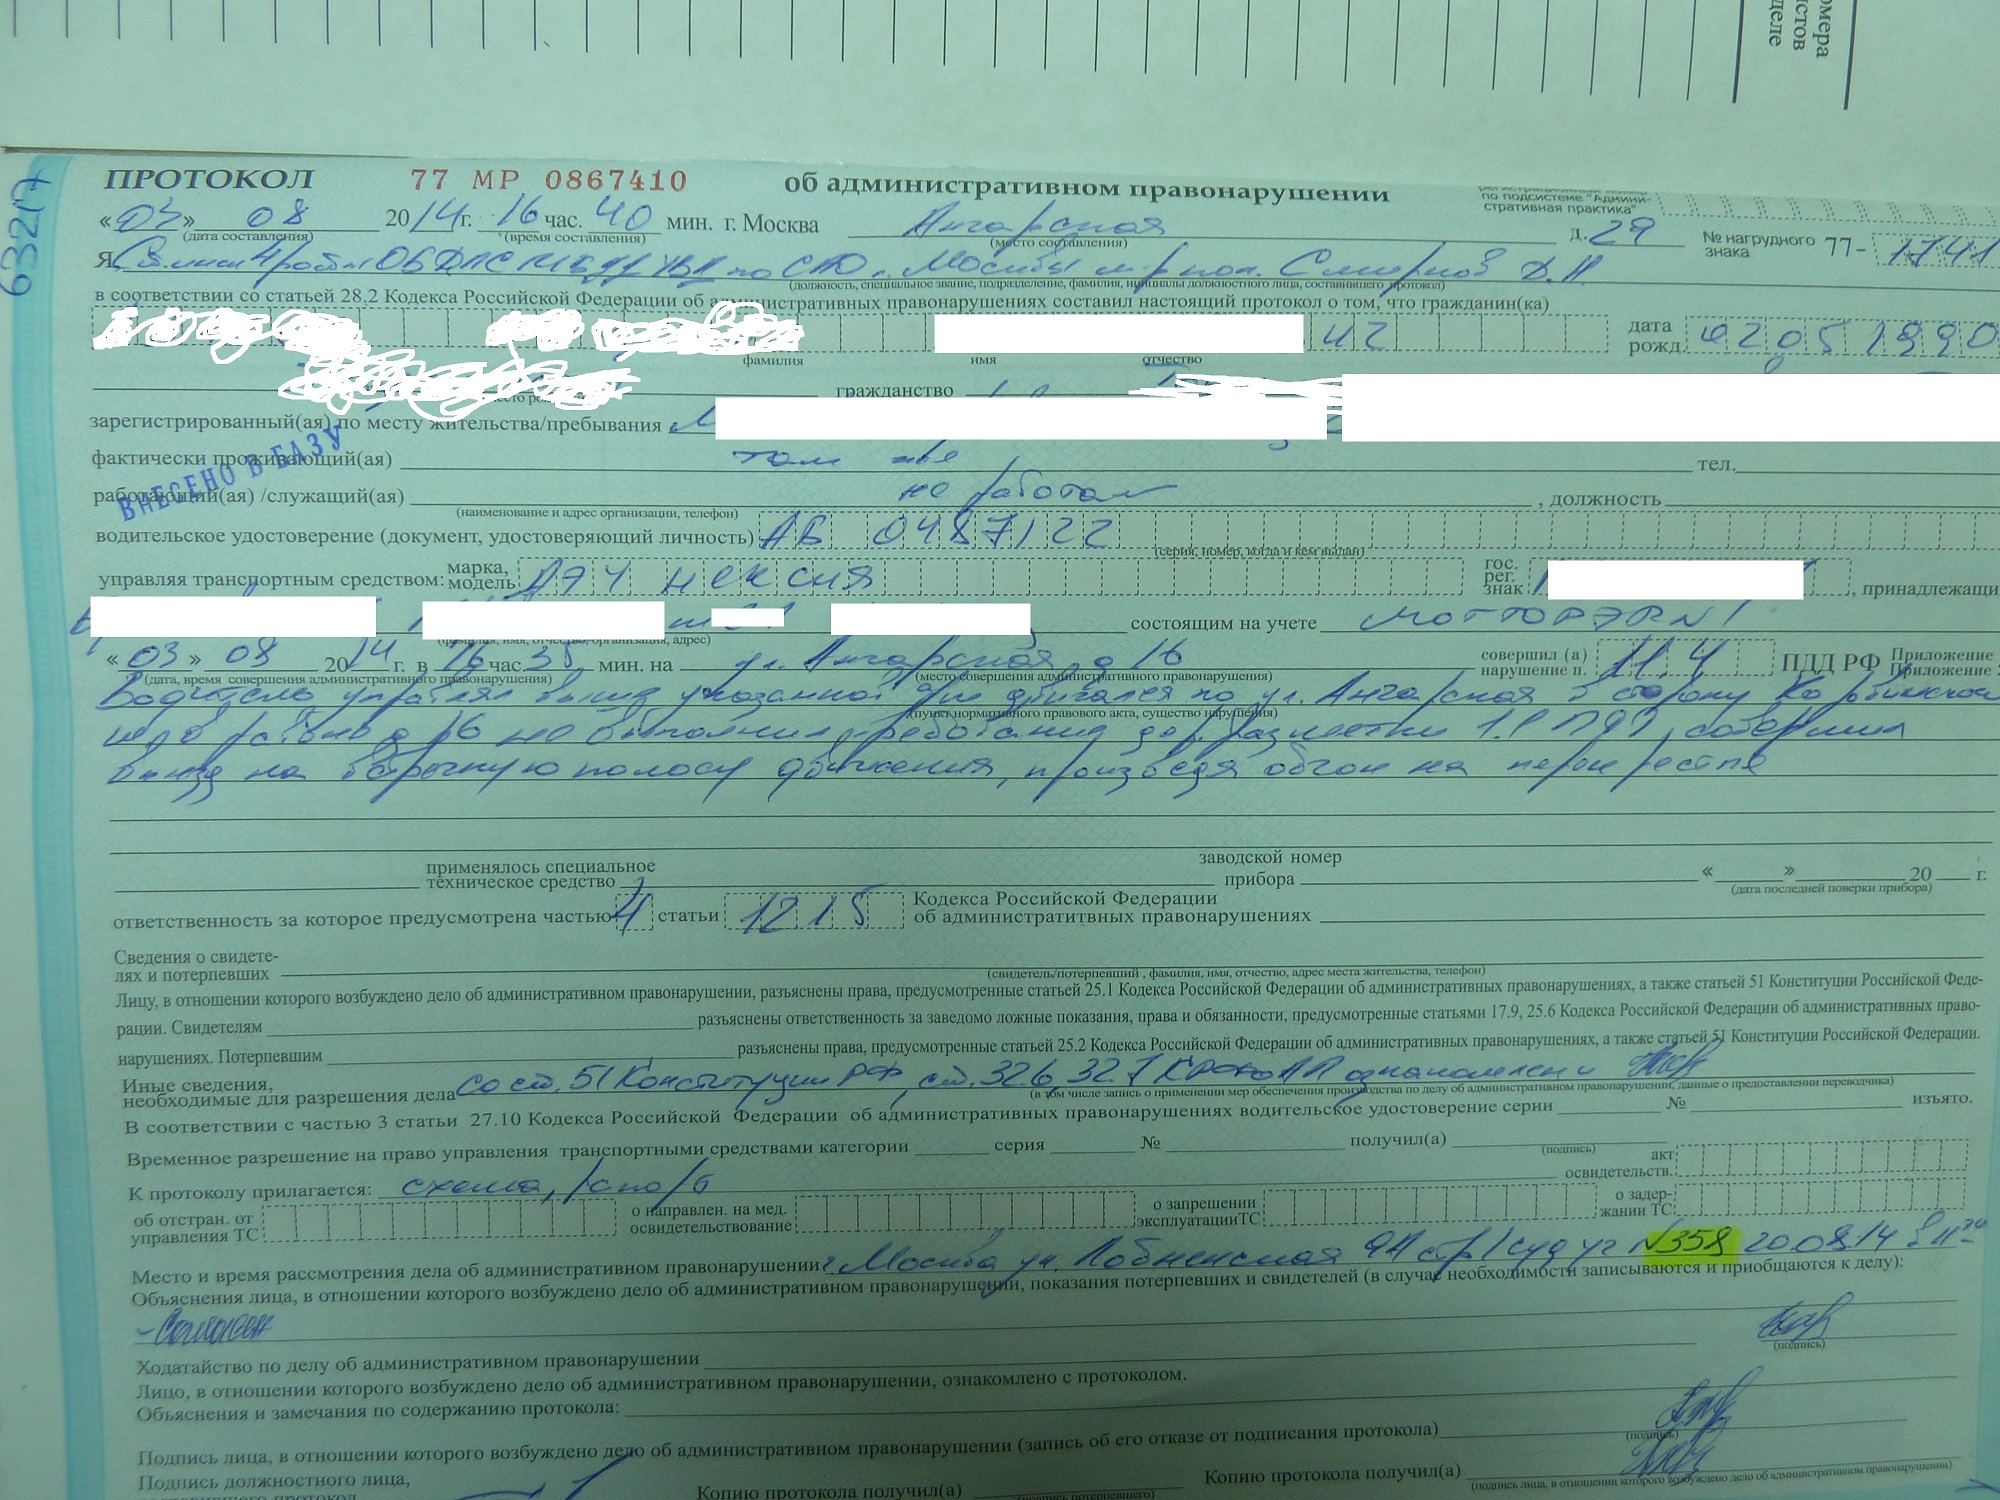 номера
листов
деле
6321/7
ПРОТОКОЛ 77 МР 0867410 об административном правонарушении
по подсистеме "Админи-
стративная практика"
«03» 08 2014г. 16 час. 40 мин. г. Москва Ангарская д.29 № нагрудного знака 77- 1741
(дата составления) (время составления) (место составления)
Я, 4 роты ОБДПС ГИБДД УВД по САО г. Москвы Смирнов Д.Н.
(должность, специальное звание, подразделение, фамилия, инициалы должностного лица, составившего протокол)
в соответствии со статьей 28.2 Кодекса Российской Федерации об административных правонарушениях составил настоящий протокол о том, что гражданин(ка)
ич дата рожд. 02.05 1990
фамилия имя отчество
гражданство
зарегистрированный(ая) по месту жительства/пребывания
фактически проживающий(ая) там же тел.
ВНЕСЕНО В БАЗУ
работающий(ая) /служащий(ая) не работает , должность
(наименование и адрес организации, телефон)
водительское удостоверение (документ, удостоверяющий личность) АБ 0487122
(серия, номер, когда и кем выдан)
управляя транспортным средством: марка, модель ДЭУ нексия гос. рег. знак , принадлежащи
состоящим на учете МОТОТРЭР N1
(фамилия, имя, отчество, организация, адрес)
« 03 » 08 2014 г. в 16 час 35 мин. на ул. Ангарская д 16 совершил (а) нарушение п. 11.4 ПДД РФ Приложение
(дата, время совершения административного правонарушения) (место совершения административного правонарушения) Приложение
Водитель управляя выше указанной двигался по ул. Ангарская в сторону Коровинского
(пункт нормативного правового акта, существо нарушения)
в районе д 16 не выполнил требования дор. разметки 1.1 ПДД, совершил
выезд на встречную полосу движения, произведя обгон на перекрестке
применялось специальное техническое средство заводской номер прибора « » 20 г.
(дата последней поверки прибора)
ответственность за которое предусмотрена частью 4 статьи 12 15 Кодекса Российской Федерации об административных правонарушениях
Сведения о свидете-
лях и потерпевших
(свидетель/потерпевший , фамилия, имя, отчество, адрес места жительства, телефон)
Лицу, в отношении которого возбуждено дело об административном правонарушении, разъяснены права, предусмотренные статьей 25.1 Кодекса Российской Федерации об административных правонарушениях, а также статьей 51 Конституции Российской Феде-
рации. Свидетелям разъяснены ответственность за заведомо ложные показания, права и обязанности, предусмотренные статьями 17.9, 25.6 Кодекса Российской Федерации об административных право-
нарушениях. Потерпевшим разъяснены права, предусмотренные статьей 25.2 Кодекса Российской Федерации об административных правонарушениях, а также статьей 51 Конституции Российской Федерации.
Иные сведения,
необходимые для разрешения дела со ст. 51 Конституции РФ, ст. 32.6, 32.7 КРФоАП ознакомлен
(в том числе запись о применении мер обеспечения производства по делу об административном правонарушении, данные о предоставлении переводчика)
В соответствии с частью 3 статьи 27.10 Кодекса Российской Федерации об административных правонарушениях водительское удостоверение серии № изъято.
Временное разрешение на право управления транспортными средствами категории серия № получил(а)
(подпись)
К протоколу прилагается: схема, рапорт акт освидетельств.
об отстран. от управления ТС о направлен. на мед. освидетельствование о запрещении эксплуатации ТС о задер-жании ТС
Место и время рассмотрения дела об административном правонарушении г. Москва ул. Лобненская 9А стр 1 суд уч N358 20.08.14 в 11
Объяснения лица, в отношении которого возбуждено дело об административном правонарушении, показания потерпевших и свидетелей (в случае необходимости записываются и приобщаются к делу):
- Согласен
(подпись)
Ходатайство по делу об административном правонарушении
Лицо, в отношении которого возбуждено дело об административном правонарушении, ознакомлено с протоколом.
Объяснения и замечания по содержанию протокола:
Подпись лица, в отношении которого возбуждено дело об административном правонарушении (запись об его отказе от подписания протокола)
(подпись)
Подпись должностного лица, Копию протокола получил(а) Копию протокола получил(а)
(подпись потерпевшего) (подпись лица, в отношении которого возбуждено дело об административном правонарушении)